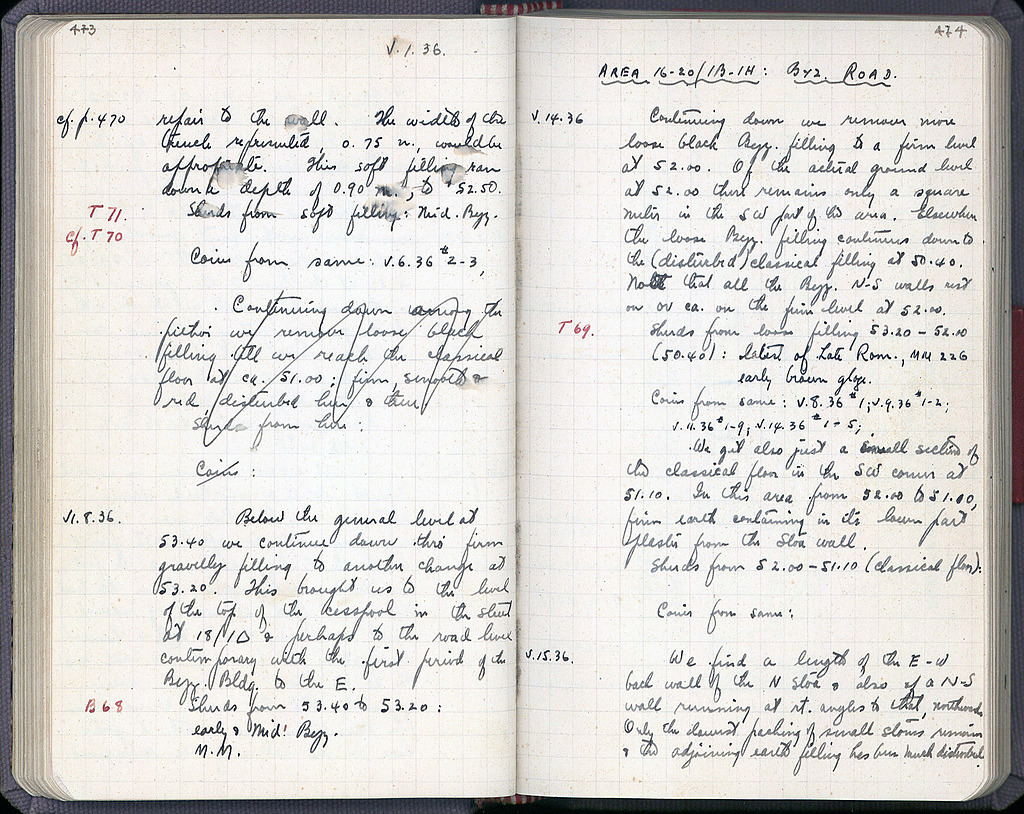 473
V.1.36.
cf. p. 470 repair to the wall. The width of the
trench represented, 0.75 m., would be
appropriate. This soft filling ran
down a depth of 0.90 m., to 52.50.
T 71. Sherds from soft filling: Mid. Byz.
cf. T 70
Coins from same: V.6.36 #2-3,
Continuing down among the
pithoi we remove loose black
filling till we reach the classical
floor at ca. 51.00; firm, smooth &
red, disturbed here & there
Sherds from here:
Coins:
VI.8.36. Below the general level at
53.40 we continue down thro' firm
gravelly filling to another change at
53.20. This brought us to the level
of the top of the cesspool in the street
at 18/1Δ & perhaps to the road level
contemporary with the first period of the
Byz. Bldg. to the E.
B 68 Sherds from 53.40 to 53.20:
early & Mid! Byz.
N.M.
474
AREA 16-20/1B-1H: BYZ. ROAD.
V.14.36 Continuing down we remove more
loose black Byz. filling to a firm level
at 52.00. Of the actual ground level
at 52.00 there remains only a square
meter in the SW part of the area. Elsewhere
the loose Byz. filling continues down to
the (disturbed) classical filling at 50.40.
Note that all the Byz. N-S walls rest
on or ca. on the firm level at 52.00.
T 69. Sherds from loose filling 53.20 - 52.00
(50.40): latest of Late Rom., MM 226
early brown glaze.
Coins from same: V.8.36 #1; V.9.36 #1-2;
V.11.36 #1-9; V.14.36 #1-5;
We get also just a small section of
the classical floor in the SW corner at
51.10. In this area from 52.00 to 51.00,
firm earth containing in its lower part
plaster from the Stoa wall.
Sherds from 52.00-51.10 (classical floor):
Coins from same:
V.15.36. We find a length of the E-W
back wall of the N Stoa & also of a N-S
wall running at rt. angles to that, northwards
Only the lowest packing of small stones remains
& the adjoining earth filling has been much disturbed